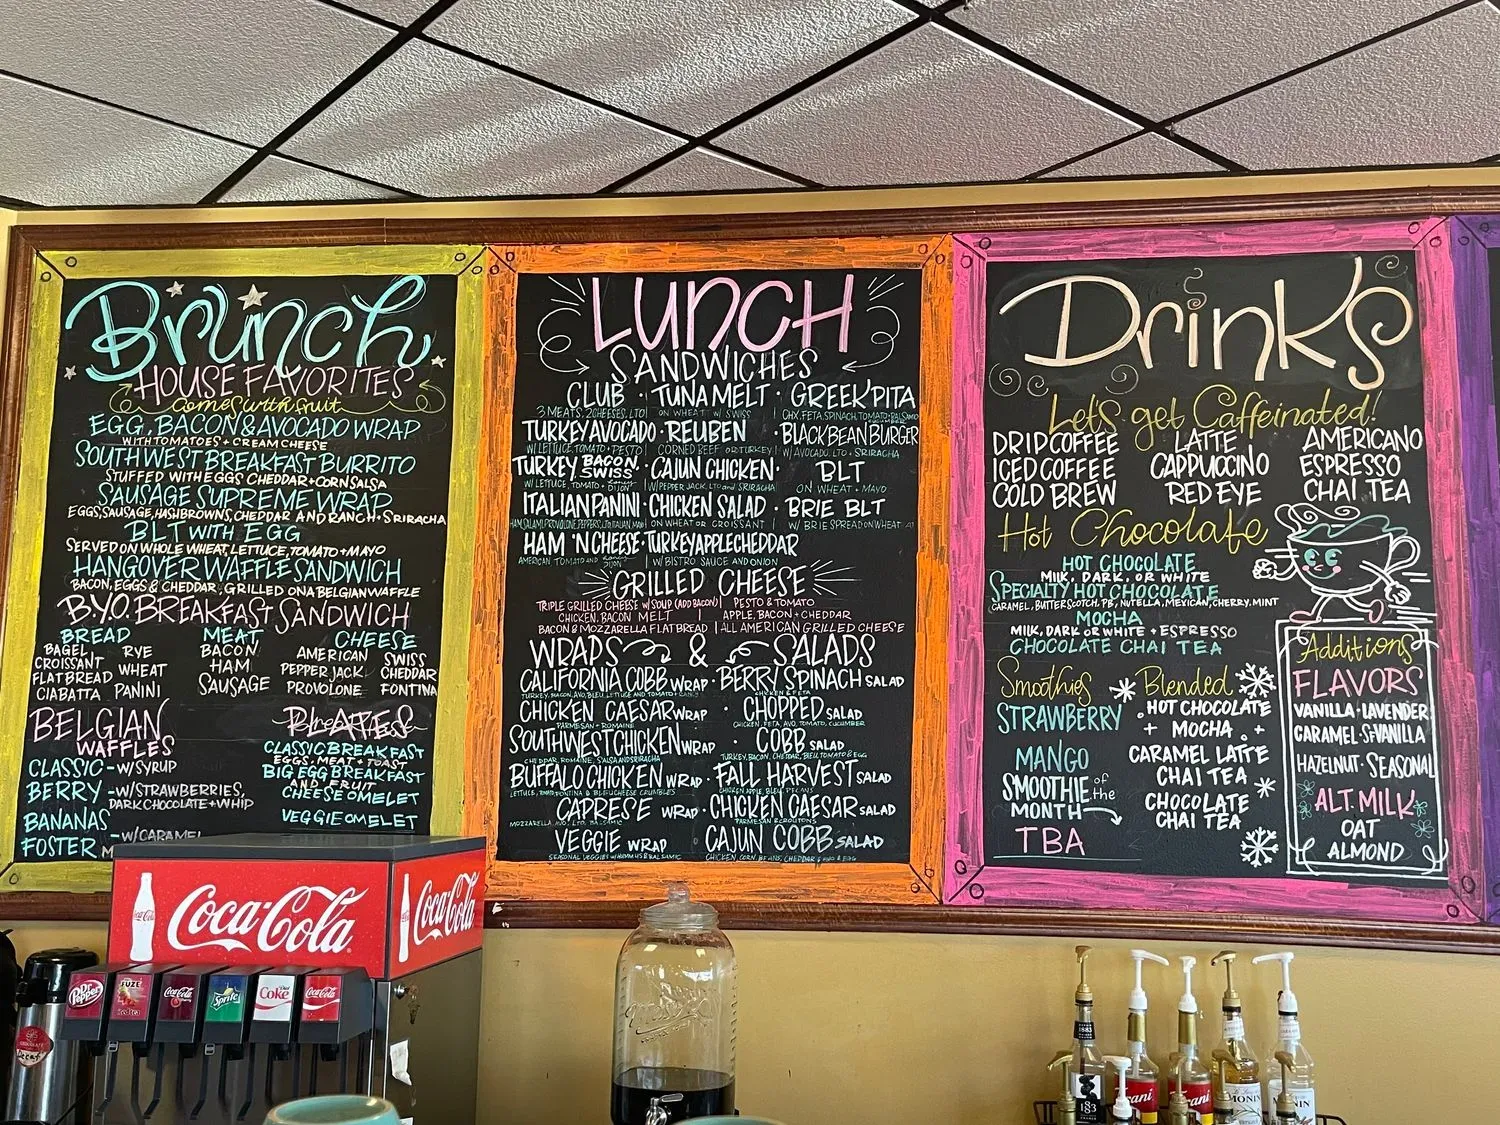 Brunch
HOUSE FAVORITES
Comes with fruit
EGG, BACON & AVOCADO WRAP
WITH TOMATOES + CREAM CHEESE
SOUTHWEST BREAKFAST BURRITO
STUFFED WITH EGGS CHEDDAR + CORN SALSA
SAUSAGE SUPREME WRAP
EGGS, SAUSAGE, HASHBROWNS, CHEDDAR AND RANCH + SRIRACHA
BLT WITH EGG
SERVED ON WHOLE WHEAT, LETTUCE, TOMATO + MAYO
HANGOVER WAFFLE SANDWICH
BACON, EGGS & CHEDDAR, GRILLED ON A BELGIAN WAFFLE
B.Y.O. BREAKFAST SANDWICH
BREAD MEAT CHEESE
BAGEL RYE BACON AMERICAN SWISS
CROISSANT WHEAT HAM PEPPER JACK CHEDDAR
FLATBREAD PANINI SAUSAGE PROVOLONE FONTINA
CIABATTA
BELGIAN
WAFFLES
CLASSIC - W/SYRUP
BERRY - W/STRAWBERRIES,
DARK CHOCOLATE + WHIP
BANANAS
FOSTER - W/CARAMEL
BIG PLATES
CLASSIC BREAKFAST
EGGS, MEAT + TOAST
BIG EGG BREAKFAST
AND FRUIT
CHEESE OMELET
VEGGIE OMELET
LUNCH
SANDWICHES
CLUB · TUNA MELT · GREEK PITA
3 MEATS, 2 CHEESES, LTO | ON WHEAT W/ SWISS | CHX, FETA, SPINACH, TOMATO + BALSAMIC
TURKEY AVOCADO · REUBEN · BLACK BEAN BURGER
W/LETTUCE, TOMATO + PESTO | CORNED BEEF OR TURKEY | W/ AVOCADO, LTO + SRIRACHA
TURKEY BACON SWISS · CAJUN CHICKEN · BLT
W/ LETTUCE, TOMATO + DIJON | W/PEPPER JACK, LTO and SRIRACHA | ON WHEAT + MAYO
ITALIAN PANINI · CHICKEN SALAD · BRIE BLT
HAM, SALAMI, PROVOLONE, PEPPERS, LTO, ITALIAN MAYO | ON WHEAT OR CROISSANT | W/ BRIE SPREAD ON WHEAT
HAM 'N CHEESE · TURKEY APPLE CHEDDAR
AMERICAN TOMATO AND DIJON | W/BISTRO SAUCE AND ONION
GRILLED CHEESE
TRIPLE GRILLED CHEESE W/ SOUP (ADD BACON) | PESTO & TOMATO
CHICKEN, BACON MELT | APPLE, BACON + CHEDDAR
BACON & MOZZARELLA FLATBREAD | ALL AMERICAN GRILLED CHEESE
WRAPS & SALADS
CALIFORNIA COBB WRAP · BERRY SPINACH SALAD
CHICKEN & FETA
CHICKEN CAESAR WRAP · CHOPPED SALAD
PARMESAN + ROMAINE CHICKEN, FETA, AVO, TOMATO, CUCUMBER
SOUTHWEST CHICKEN WRAP · COBB SALAD
CHEDDAR, ROMAINE, SALSA AND SRIRACHA TURKEY, BACON, CHEDDAR, BLEU, TOMATO & EGG
BUFFALO CHICKEN WRAP · FALL HARVEST SALAD
CHICKEN, APPLE, BLEU, PECANS
CAPRESE WRAP · CHICKEN CAESAR SALAD
PARMESAN & CROUTONS
VEGGIE WRAP CAJUN COBB SALAD
SEASONAL VEGGIES W/ HUMMUS & BALSAMIC CHICKEN, CORN, BEANS, CHEDDAR & EGG
Drinks
Let's get Caffeinated!
DRIP COFFEE LATTE AMERICANO
ICED COFFEE CAPPUCCINO ESPRESSO
COLD BREW RED EYE CHAI TEA
Hot Chocolate
HOT CHOCOLATE
MILK, DARK, OR WHITE
SPECIALTY HOT CHOCOLATE
CARAMEL, BUTTERSCOTCH, PB, NUTELLA, MEXICAN, CHERRY, MINT
MOCHA
MILK, DARK OR WHITE + ESPRESSO
CHOCOLATE CHAI TEA
Smoothies
STRAWBERRY
MANGO
SMOOTHIE of the
MONTH
TBA
Blended
HOT CHOCOLATE
MOCHA
CARAMEL LATTE
CHAI TEA
CHOCOLATE
CHAI TEA
Additions
FLAVORS
VANILLA · LAVENDER
CARAMEL · SF VANILLA
HAZELNUT · SEASONAL
ALT. MILK
OAT
ALMOND
Coca-Cola
Coca-Cola
Dr Pepper
FUZE
Iced Tea
Coca-Cola
Sprite
Diet
Coke
Coca-Cola
Decaf
1883
1883